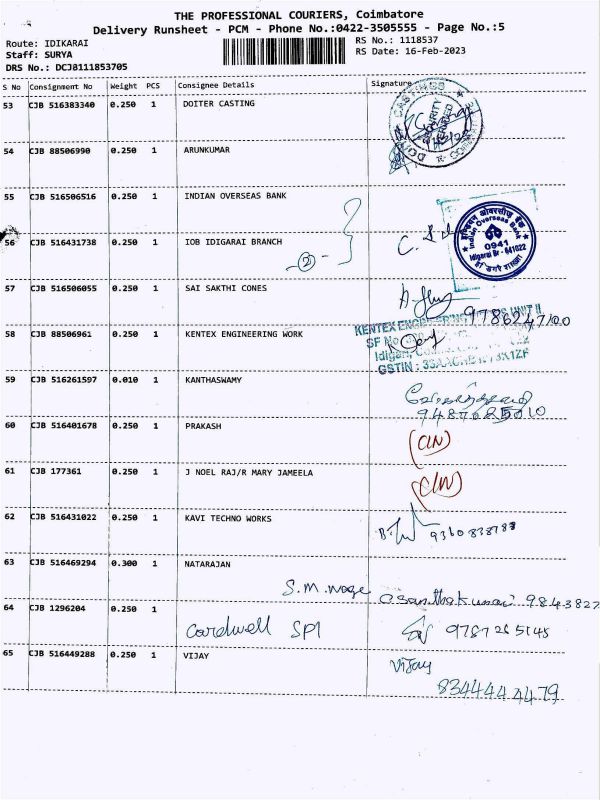 THE PROFESSIONAL COURIERS, Coimbatore
Delivery Runsheet - PCM - Phone No.:0422-3505555 - Page No.:5
Route: IDIKARAI
RS No.: 1118537
Staff: SURYA
RS Date: 16-Feb-2023
DRS No.: DCJ8111853705
S No Consignment No Weight PCS Consignee Details Signature
53 CJB 516383340 0.250 1 DOITER CASTING
SECURITY
54 CJB 88506990 0.250 1 ARUNKUMAR
55 CJB 516506516 0.250 1 INDIAN OVERSEAS BANK
इण्डियन ओवरसीज़ बैंक
Indian Overseas Bank
0941
Idigarai Br - 641022
56 CJB 516431738 0.250 1 IOB IDIGARAI BRANCH
-②-
57 CJB 516506055 0.250 1 SAI SAKTHI CONES
9786247100
58 CJB 88506961 0.250 1 KENTEX ENGINEERING WORK
KENTEX ENGINEERING UNIT II
SF No
GSTIN :
59 CJB 516261597 0.010 1 KANTHASWAMY
9487025010
60 CJB 516401678 0.250 1 PRAKASH
(CIN)
61 CJB 177361 0.250 1 J NOEL RAJ/R MARY JAMEELA
(CIN)
62 CJB 516431022 0.250 1 KAVI TECHNO WORKS
9360838788
63 CJB 516469294 0.300 1 NATARAJAN
S.M. nage 9843827
64 CJB 1296204 0.250 1
Cardwell SPI 9787265145
65 CJB 516449288 0.250 1 VIJAY
Vijay
8344444479